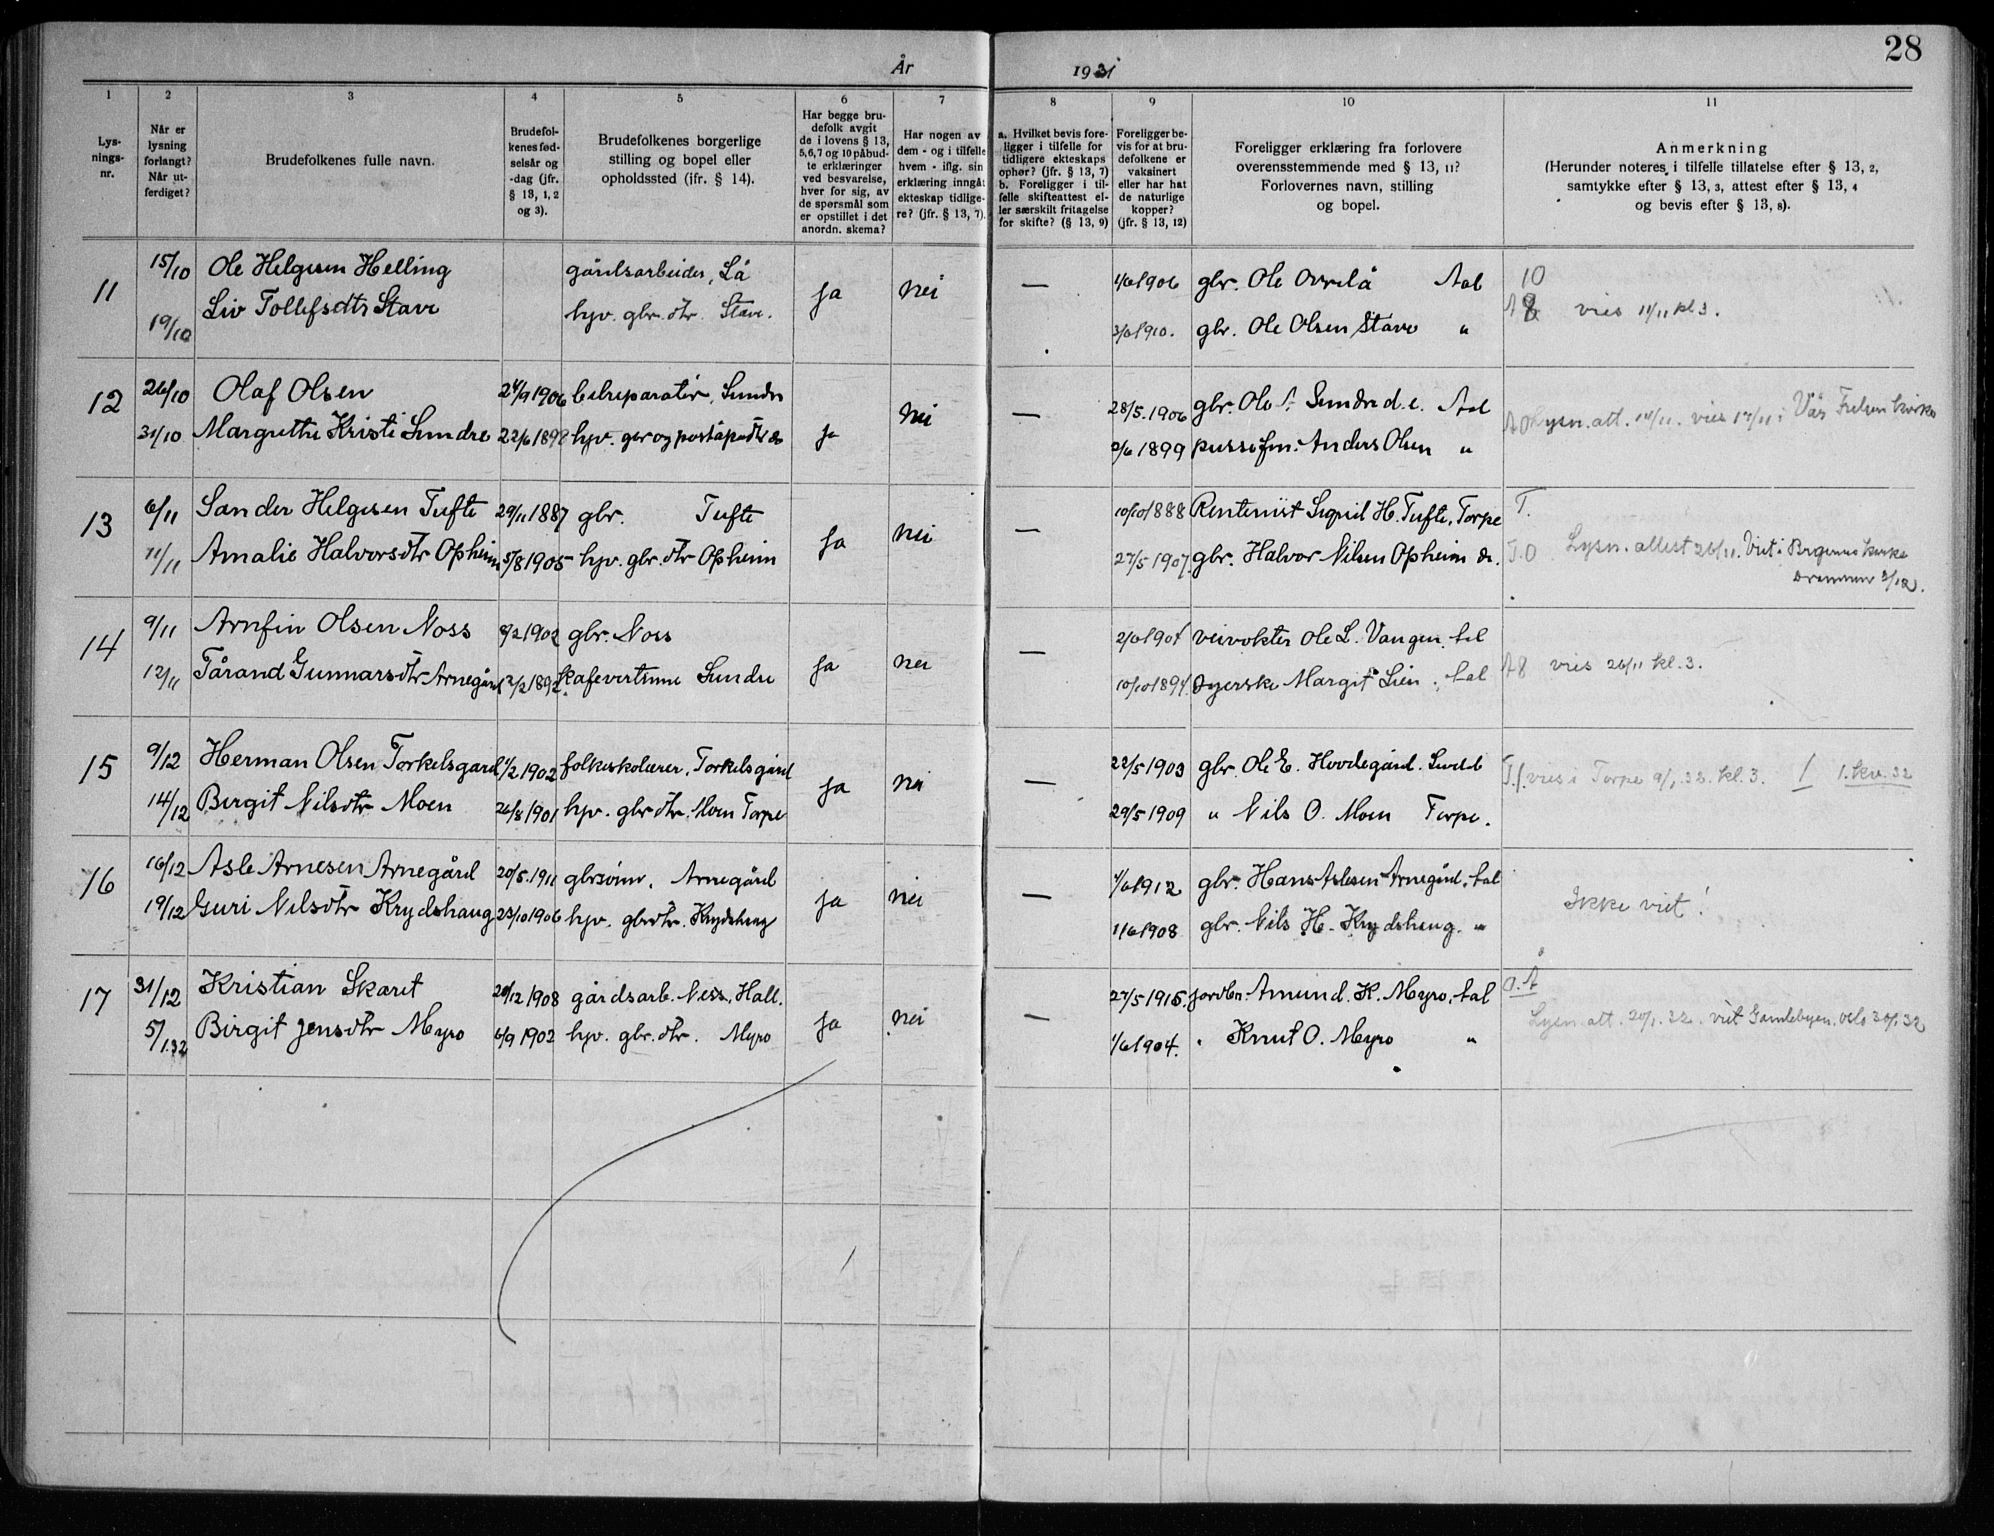 28
År 1931
1 2 3 4 5 6 7 8 9 10 11
Lys-
nings-
nr.
Når er
lysning
forlangt?
Når ut-
ferdiget?
Brudefolkenes fulle navn.
Brudefol-
kenes fød-
selsår og
-dag (jfr.
§ 13, 1, 2
og 3).
Brudefolkenes borgerlige
stilling og bopel eller
opholdssted (ifr. § 14).
Har begge bru-
defolk avgit
de i lovens § 13,
5,6,7 og 10 påbud-
te erklæringer
ved besvarelse,
hver for sig, av
de spørsmål som
er opstillet i det
anordn. skema?
Har nogen av
dem - og i tilfelle
hvem - iflg. sin
erklæring inngåt
ekteskap tidlige-
re? (jfr. § 13, 7).
a. Hvilket bevis fore-
ligger i tilfelle for
tidligere ekteskaps
ophør? (jfr. § 13, 7)
b. Foreligger i til-
felle skifteattest el-
ler særskilt fritagelse
for skifte? (§ 13, 9)
Foreligger be-
vis for at bru-
defolkene er
vaksinert
eller har hat
de naturlige
kopper?
(jfr. § 13, 12)
Foreligger erklæring fra forlovere
overensstemmende med § 13, 11?
Forlovernes navn, stilling
og bopel.
Anmerkning
(Herunder noteres i tilfelle tillatelse efter § 13, 2,
samtykke efter § 13, 3, attest efter § 13, 4
og bevis efter § 13, 8).
11 15/10 Ole Helgesen Helling gårdsarbeider, Lå ja nei — 1/6 1906 glr. Ole Ovrelå Aal 10
19/10 Liv Tollefsdtr Stave hjv. gbr. dtr. Stave. 3/6 1910. gbr. Ole Olsen Stave " A8 vies 11/11 kl 3.
12 26/10 Olaf Olsen 24/9 1906 bilreparatør, Sundre nei — 28/5.1906 gbr. Ole A. Sundre d.e. Aal
31/10 Margrethe Kristi Sundre 22/6 1898 hjv. ja 2/6 1899 Anders Olsen " Lysn. att. 14/11. vies 17/11 i Vår Frelsers kirke
13 6/11 Sander Helgesen Tufte 29/11 1887 gbr. Tufte ja nei — 10/10 1888 Rentenist Sigrid H. Tufte, Torpe T.
11/11 Amalie Halvorsdtr Opheim 5/8 1905 hjv. gbr. dtr Opheim 27/5 1907. gbr. Halvor Nilsen Opheim do. T.O Lysn. attest 26/11. Viet i Bragernes kirke
Drammen 2/12.
14 9/11 Arnfin Olsen Noss 8/2 1902 gbr. Noss ja nei — 2/6 1907 veivokter Ole L. Vangen. Aal
12/11 Tårand Gunnarsdtr Arnegård 12/2 1892 kafevertinne Sundre 10/10 1894. Syerske Margit Lien, Aal A8 vies 26/11 kl. 3.
15 9/12 Herman Olsen Torkelsgard 1/2 1902 folkeskolærer, Torkelsgård ja nei — 22/5 1903 gbr. Ole E. Hovdegård.
14/12 Birgit Nilsdtr Moen 26/8 1901 hjv. gbr dtr. Moen Torpe 29/5 1909 " Nils O. Moen Torpe. T./. vies i Torpe 9/1 32. kl. 3. 1 1. kv. 32
16 16/12 Asle Arnesen Arnegård 20/5.1911 gbrsønn. Arnegård ja nei — 1/6 1912 gbr. Hans Aslesen Arnegård, Aal
19/12 Guri Nilsdtr Krydshaug 23/10 1906 hjv. gbrdtr. Krydshaug 1/6 1908 gbr. Nils H. Krydshaug. " Ikke viet!
17 31/12 Kristian Skaret 28/12 1908 gårdsarb. Ness, Hall. ja nei — 27/5 1915. jordbr. Amund K. Myro, Aal O.A
5/1.32 Birgit Jensdtr Myro 6/9 1902 hjv. gbr. dtr. Myro 1/6 1904. " Knut O. Myro " Lysn. att. 20/1.32. viet Gamlebyen. Oslo 30/1 32